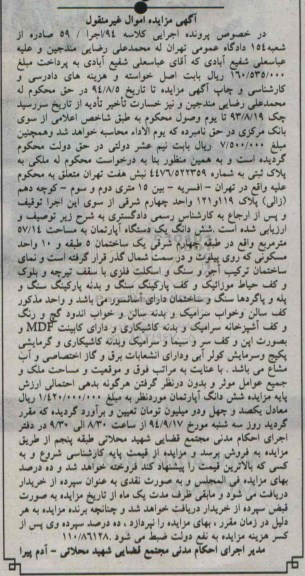 آگهی مزایده اموال غیرمنقول
در خصوص پرونده اجرایی کلاسه ۹۴/اجرا / ۵۹ صادره از
شعبه ۱۵۴ دادگاه عمومی تهران له محمدعلی رضایی مندجین و علیه
عباسعلی شفیع آبادی که آقای عباسعلی شفیع آبادی به پرداخت مبلغ
۱۶۰/۵۳۵/۰۰۰ ریال بابت اصل خواسته و هزینه های دادرسی و
کارشناسی و چاپ آگهی مزایده تا تاریخ ۹۴/۸/۵ در حق محکوم له
محمدعلی رضایی مندجین و نیز خسارت تأخیر تأدیه از تاریخ سررسید
چک ۹۳/۸/۱۹ تا یوم وصول محکوم به طبق شاخص اعلامی از سوی
بانک مرکزی در حق نامبرده که یوم الاداء محاسبه خواهد شد وهمچنین
مبلغ ۷/۵۰۰/۰۰۰ ریال بابت نیم عشر دولتی در حق دولت محکوم
گردیده است و به همین منظور بنا به درخواست محکوم له ملکی به
پلاک ثبتی به شماره ۴۴۷۶/۵۲۲۳۵۹ نبش هفت تهران متعلق به محکوم
علیه واقع در تهران - افسریه - بین ۱۵ متری دوم و سوم - کوچه دهم
(زالی) پلاک ۱۱۹و۱۲۱ واحد چهارم شرقی از سوی این اجرا توقیف
و پس از ارجاع به کارشناس رسمی دادگستری به شرح زیر توصیف و
ارزیابی شده است. شش دانگ یک دستگاه آپارتمان به مساحت ۵۷/۱۴
مترمربع واقع در طبقه چهارم شرقی یک ساختمان ۵ طبقه و ۱۰ واحد
مسکونی که روی پیلوت و در سمت شمال گذر قرار گرفته است و نمای
ساختمان ترکیب آجر و سنگ و اسکلت فلزی با سقف تیرچه و بلوک
و کف حیاط موزائیک و کف پارکینگ سنگ و بدنه پارکینگ سنگ و
پله و پاگردها سنگ و ساختمان دارای آسانسور می باشد و واحد مذکور
کف سالن وخواب سرامیک و بدنه سالن و خواب اندود گچ و رنگ
و کف آشپزخانه سرامیک و بدنه کاشیکاری و دارای کابینت MDF و
بصورت اپن و کف سر و سیما و سرامیک وبدنه کاشیکاری و گرمایشی
پکیج وسرمایش کولر آبی ودارای انشعابات برق و گاز اختصاصی و آب
مشاع می باشد . با عنایت به مراتب فوق و موقعیت و مساحت ملک و
جمیع عوامل موثر و بدون درنظر گرفتن هرگونه بدهی احتمالی ارزش
پایه مزایده شش دانگ آپارتمان موردنظر به مبلغ ۱/۴۲۰/۰۰۰/۰۰۰ ریال
معادل یکصد و چهل ودو میلیون تومان تعیین و برآورد گردیده که مقرر
گردید روز سه شنبه مورخ ۹۴/۹/۱۷ از ساعت ۸/۳۰ الی ۹/۳۰ در دفتر
اجرای احکام مدنی مجتمع قضایی شهید محلاتی طبقه پنجم از طریق
مزایده به فروش برسد و مزایده از قیمت پایه کارشناسی شروع و به
کسی که بالاترین قیمت را پیشنهاد کند فروخته خواهد شد و ده درصد
بهای مزایده فی المجلس و به صورت نقدی به عنوان سپرده از خریدار
دریافت می شود و مابقی ظرف مدت یک ماه از تاریخ مزایده به صورت
قبض سپرده از خریدار دریافت خواهد شد و چنانچه برنده مزایده به هر
دلیل در زمان مقرر ، بهای مزایده را نپردازد ، ده درصد سپرده وی پس از
کسر هزینه مزایده به نفع دولت ضبط می شود. ۱۱۰/۸۶۱۲۸
مدیر اجرای احکام مدنی مجتمع قضایی شهید محلاتی - آدم پیرا